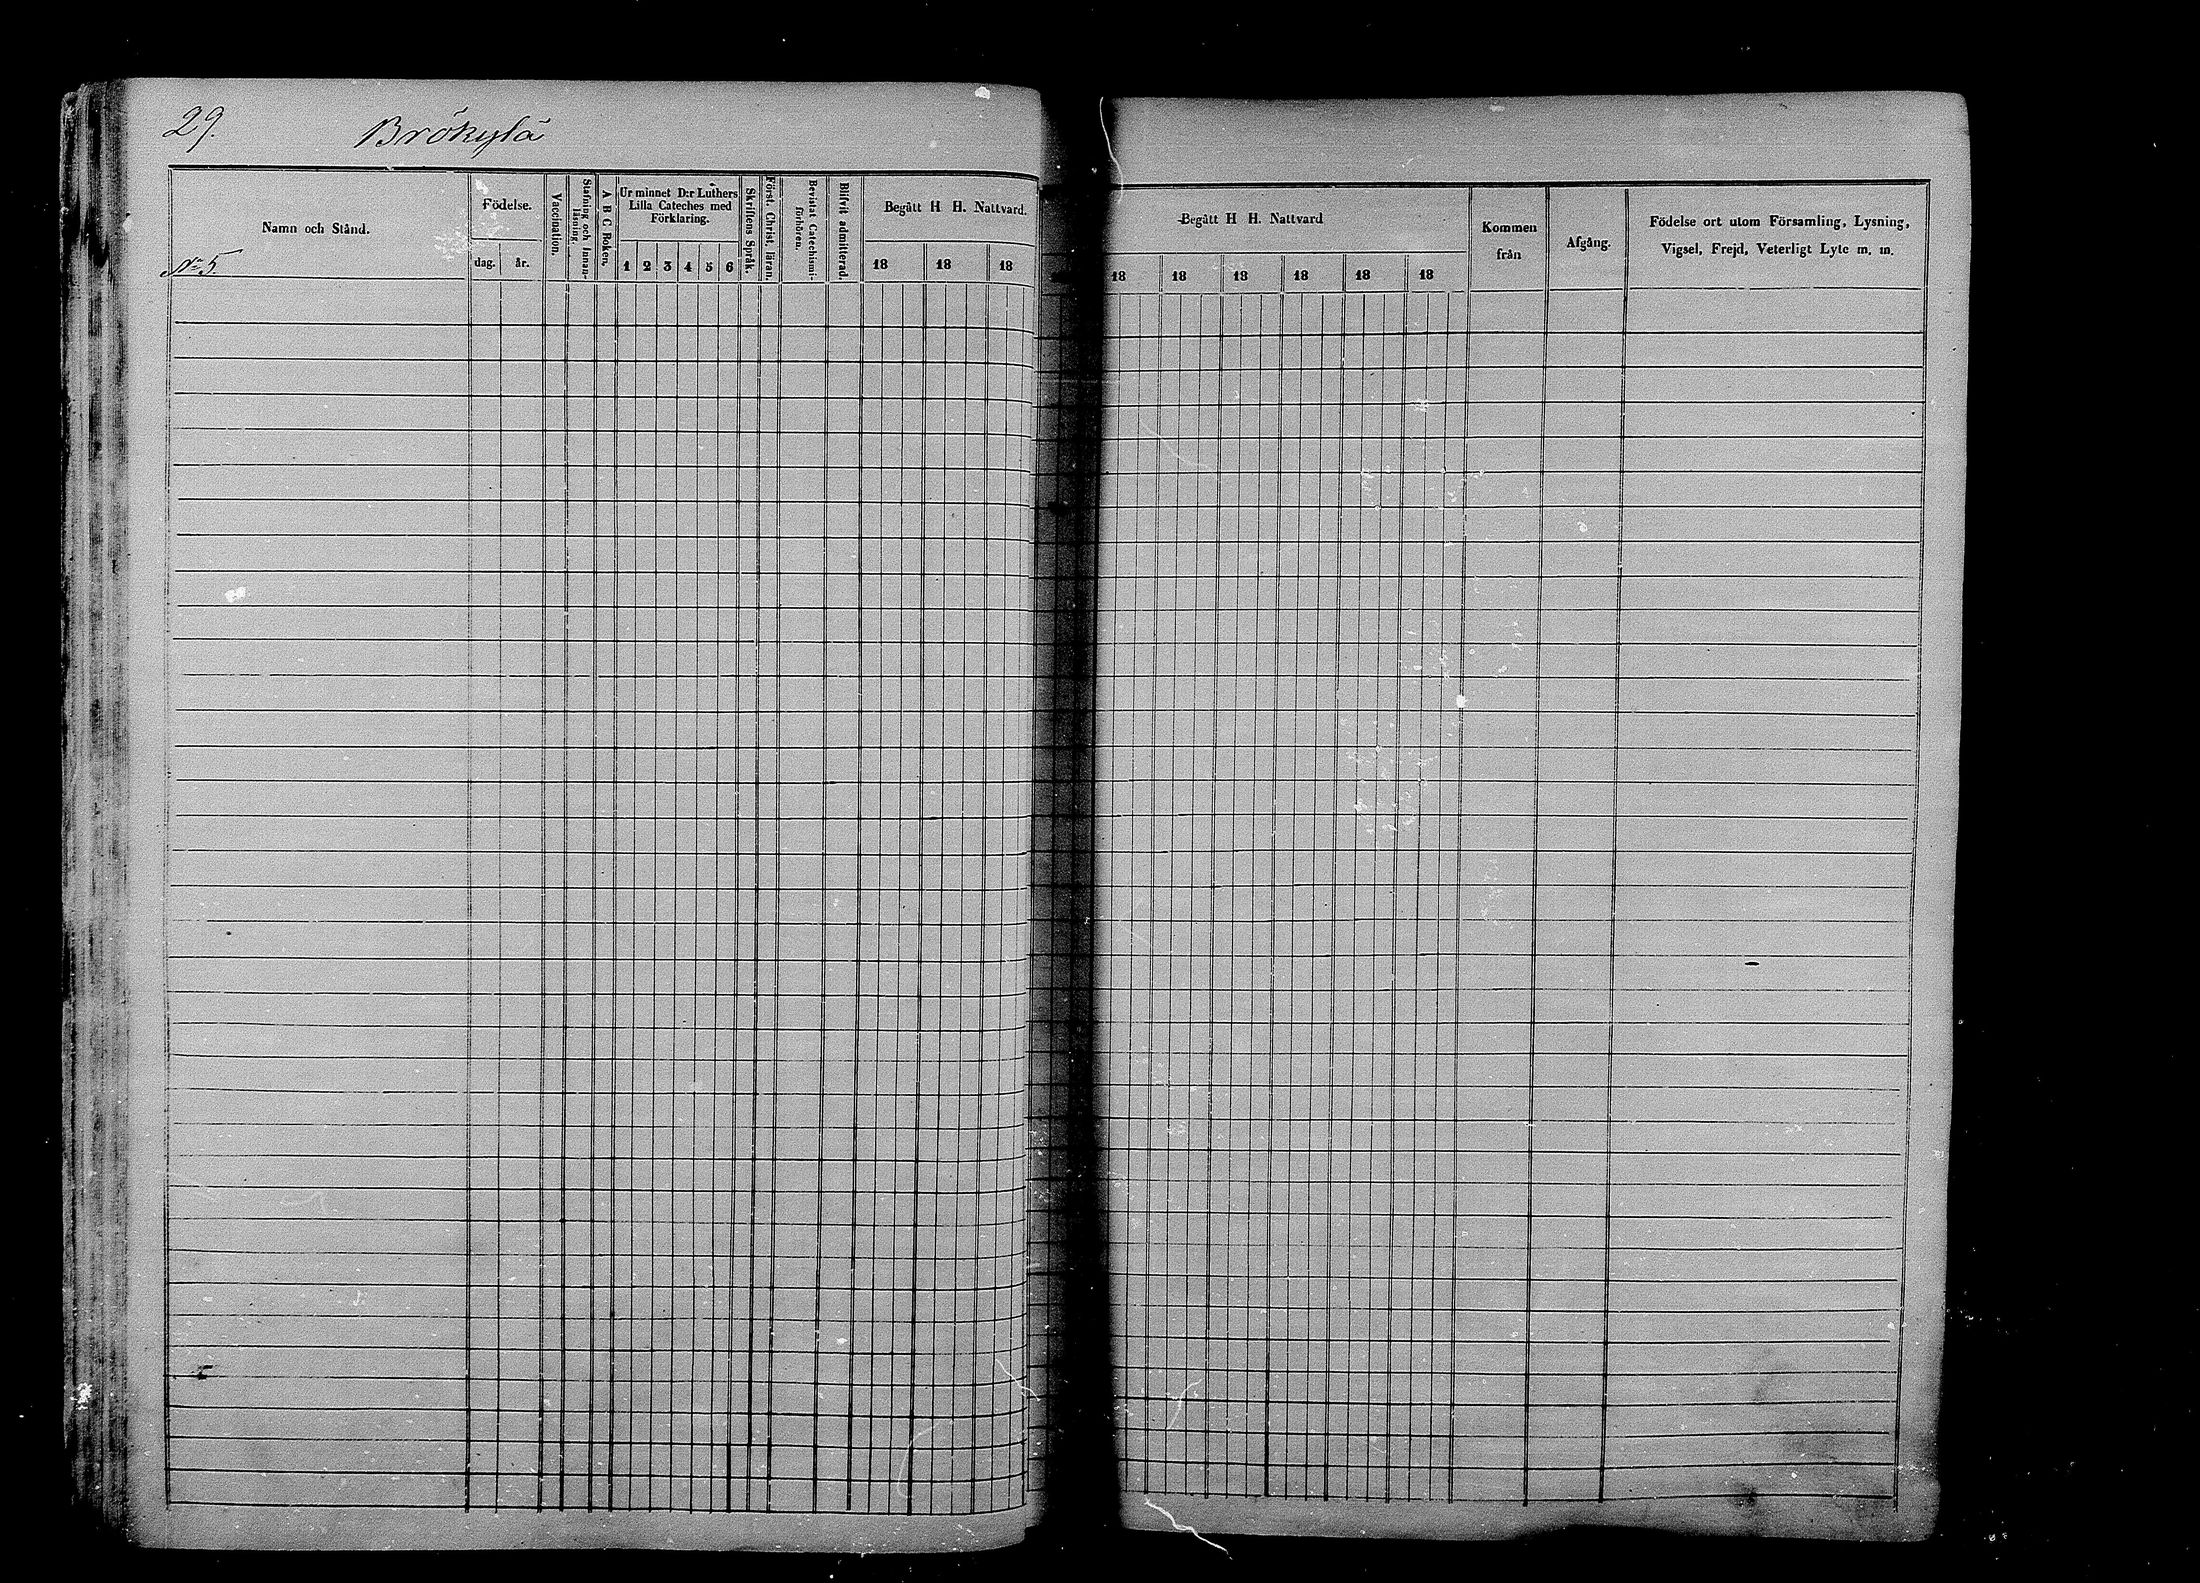 29. Brökylä
Namn och Stånd.
№ 5.
Födelse.
dag. år.
Vaccination.
Stafning och Innan-
läsning.
A B C Boken.
Ur minnet D:r Luthers
Lilla Cateches med
Förklaring.
1 2 3 4 5 6
Skriftens Språk.
Först. Christ. läran.
Bevistat Catechismi-
förhören.
Blifvit admitterad.
Begått H H. Nattvard.
18 18 18
Begått H H. Nattvard
18 18 18 18 18 18
Kommen
från
Afgång.
Födelse ort utom Församling, Lysning,
Vigsel, Frejd, Veterligt Lyte m. m.